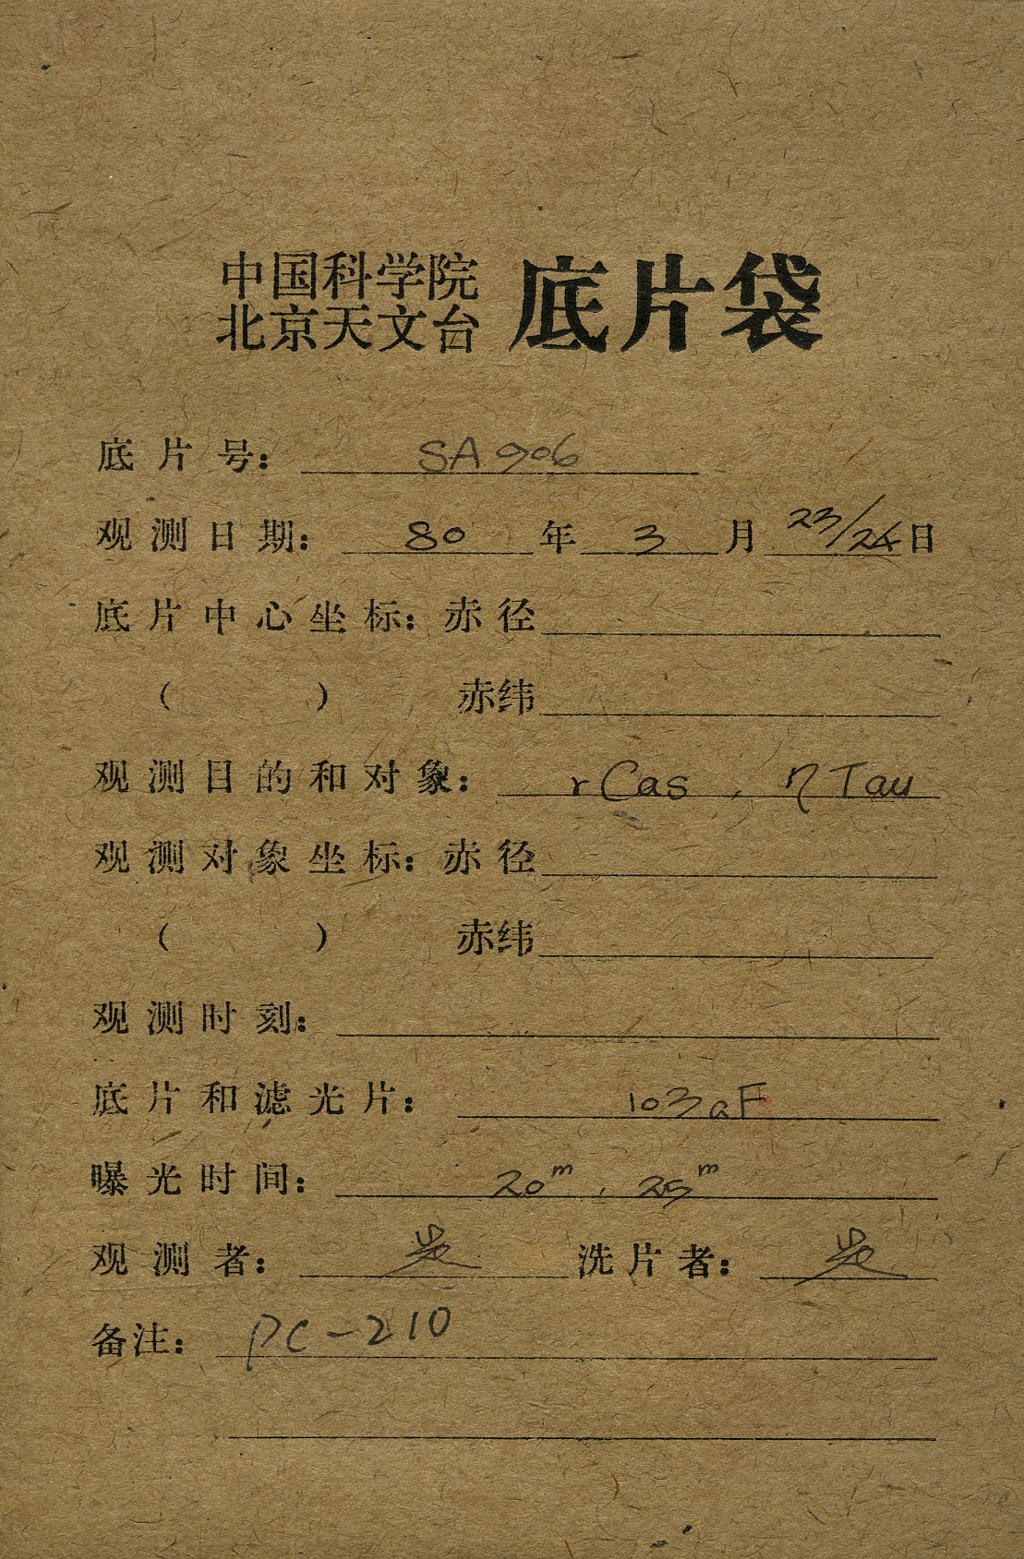 中国科学院
北京天文台 底片袋
底片号： SA 906
观测日期： 80 年 3 月 23/24 日
底片中心坐标：赤径
（ ） 赤纬
观测目的和对象： r Cas , η Tau
观测对象坐标：赤径
（ ） 赤纬
观测时刻：
底片和滤光片： 103aF
曝光时间： 20m , 25m
观测者： 洗片者：
备注： PC-210